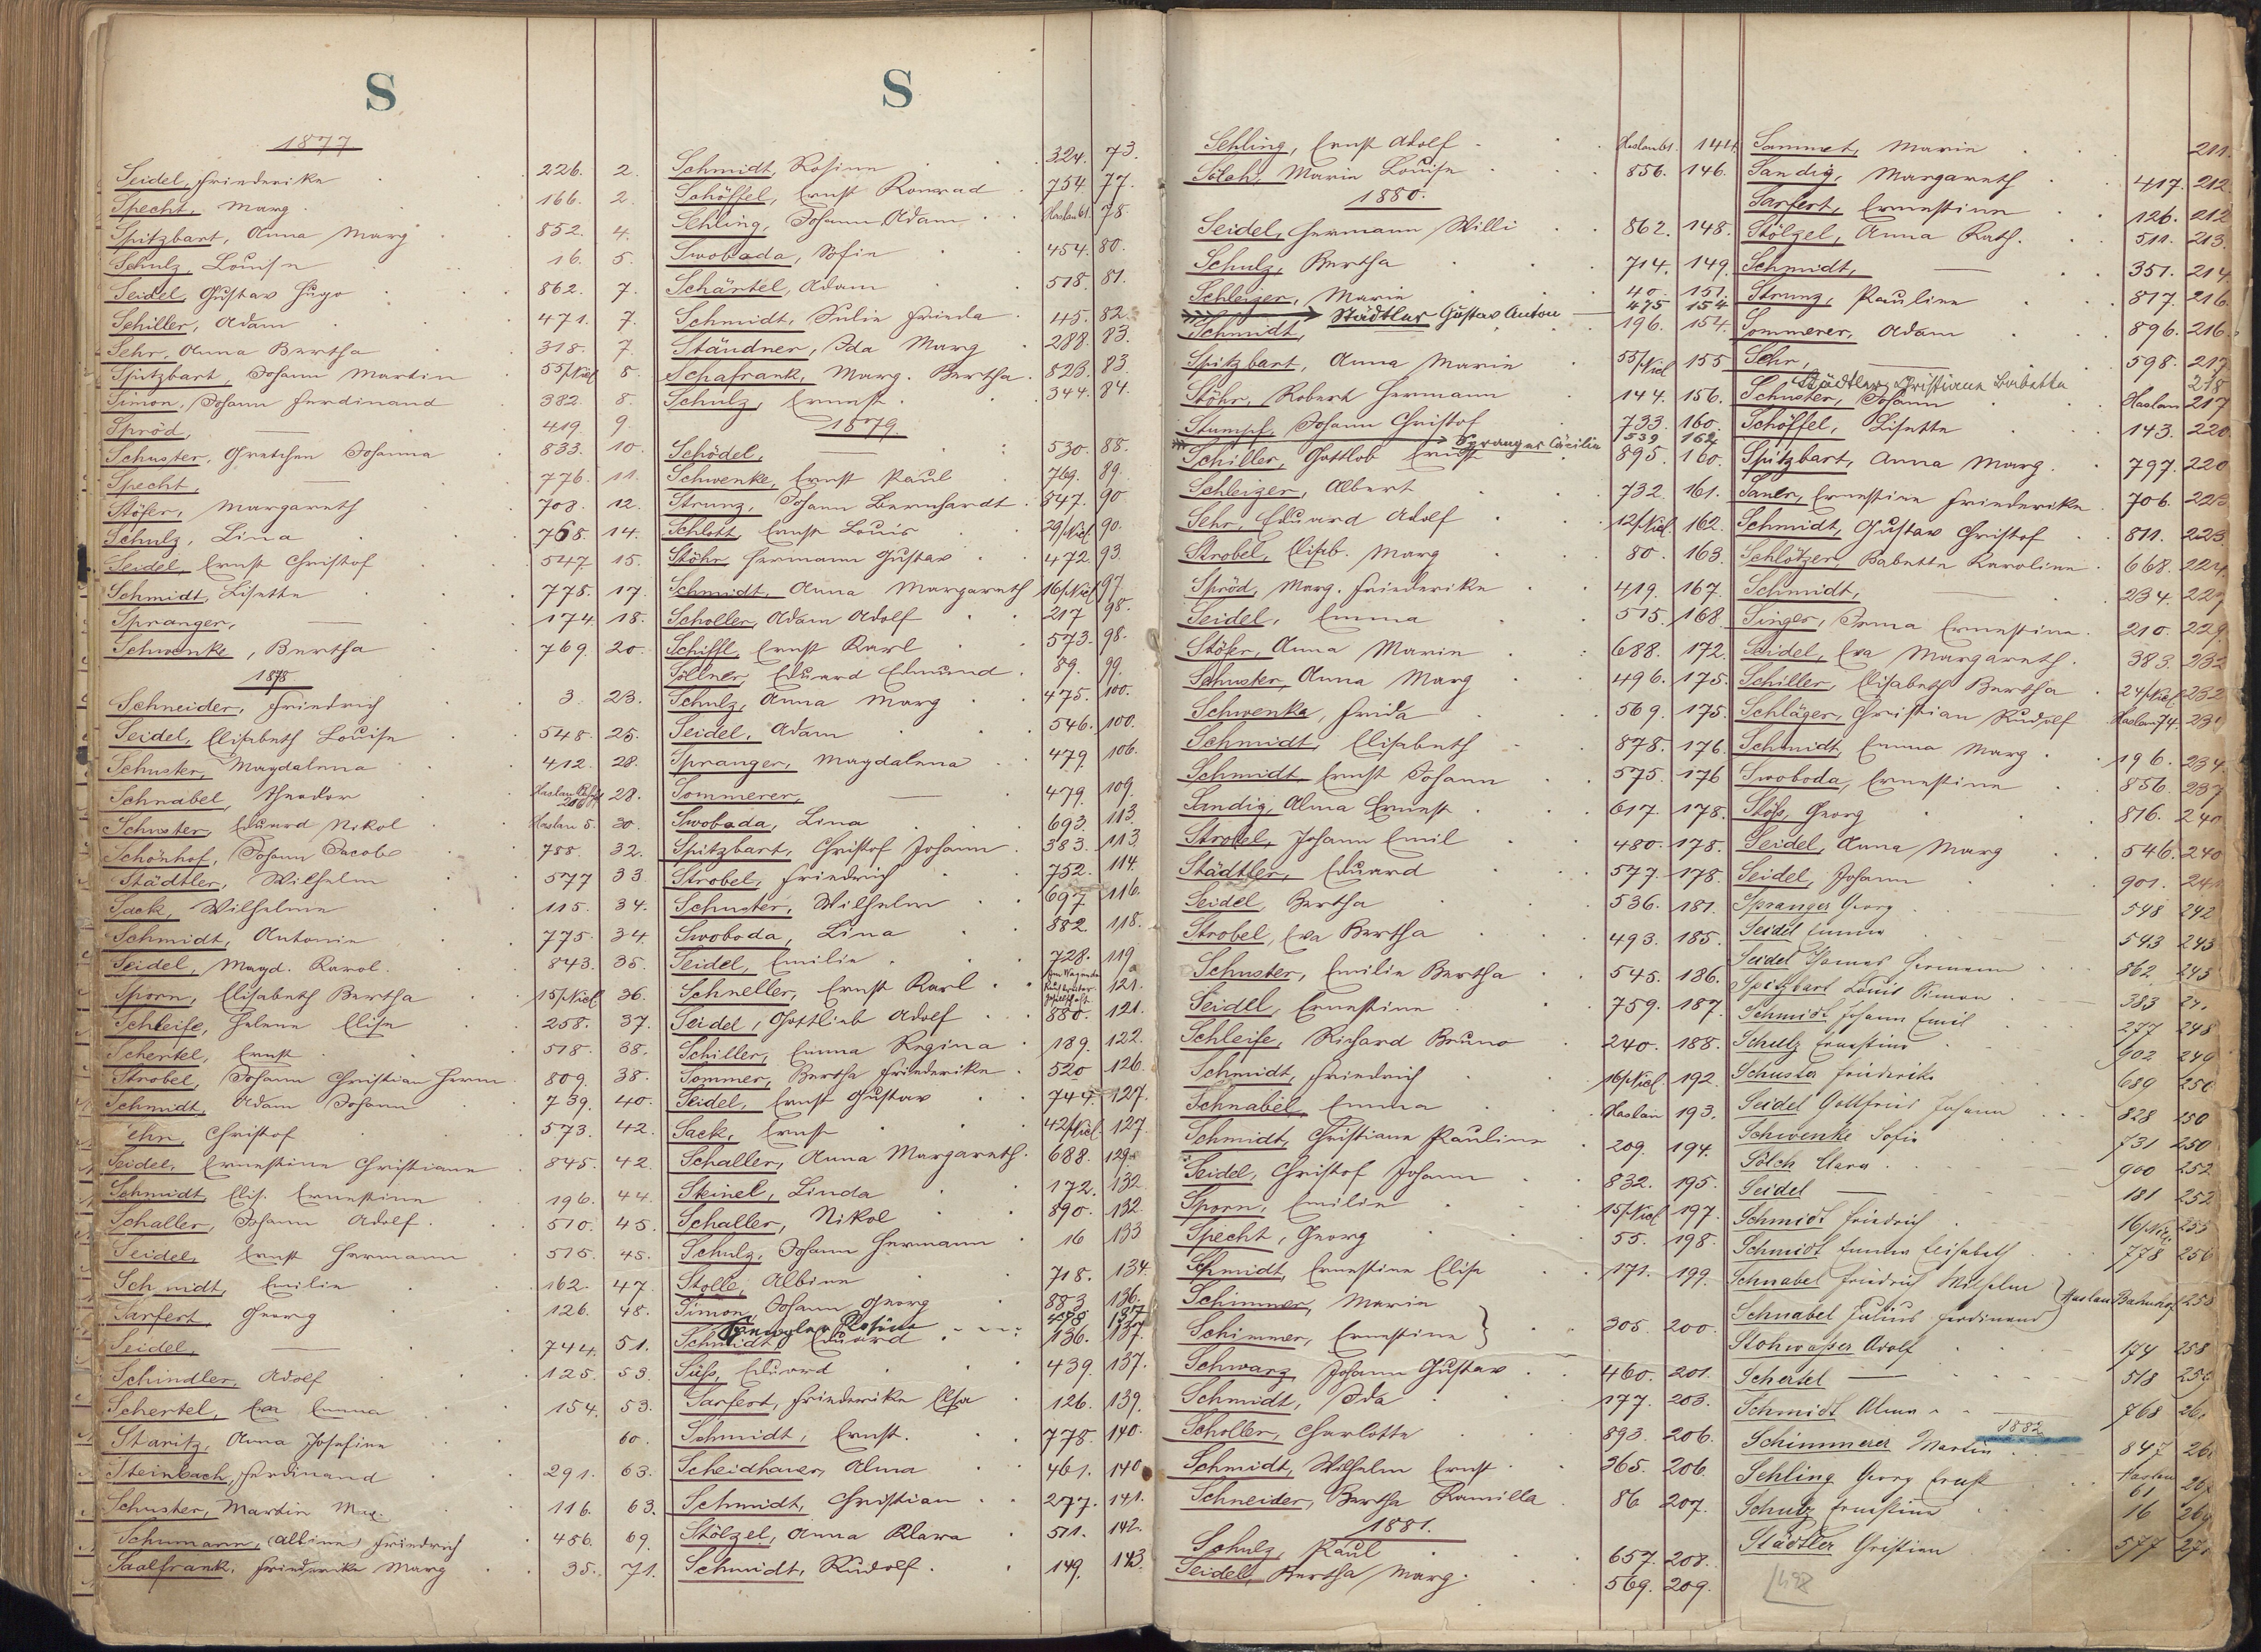 S
1877
Seidel, Friederike 226. 2.
Specht, Marg. 166. 2.
Spitzbart, Anna Marg 852. 4.
Schulz, Louise 16. 5.
Seidel, Gustav Hugo 862. 7.
Schiller, Adam 471. 7.
Sehr, Anna Bertha 318. 7.
Spitzbart, Johann Martin 55/Nied 8.
Simon, Johann Ferdinand 382. 8.
Spröd, — 419. 9.
Schuster, Gretchen Johanna 833. 10.
Specht, — 776. 11.
Stöser, Margareth 708. 12.
Schulz, Lina 768. 14.
Seidel, Ernst Christof 547. 15.
Schmidt, Lisette 775. 17.
Spranger, — 174. 18.
Schwenke, Bertha 769. 20.
1878
Schneider, Friedrich 3. 23.
Seidel, Elisabeth Louise 548. 25.
Schuster, Magdalena 412. 28.
Schnabel, Theodor 28.
Schuster, Eduard Nikol Haslau 5. 30.
Schönhof, Johann Jacob 788. 32.
Städtler, Wilhelm 577 33
Sack, Wilhelmine 115. 34.
Schmidt, Antonie 775. 34.
Seidel, Magd. Karol. 843. 35.
Sporn, Elisabeth Bertha 15/Nied 36.
Schleife, Helene Elise 258. 37.
Schertel, Ernst 518. 38.
Strobel, Johann Christian Herm 809. 38.
Schmidt, Adam Johann 739. 40.
Sehr, Christof 573. 42.
Seidel, Ernestine Christiane 845. 42.
Schmidt, Elis. Ernestine 196. 44.
Schaller, Johann Adolf 510. 45.
Seidel, Ernst Hermann 515. 45.
Schmidt, Emilie 162. 47.
Sarfert, Georg 126. 48.
Seidel, — 744. 51.
Schindler, Adolf 125. 53.
Schertel, Eva Emma 154. 53.
Staritz, Anna Josefine 60.
Steinbach, Ferdinand 291. 63.
Schuster, Martin Max. 116. 63.
Schumann, (Albine) Friedrich 456. 69.
Saalfrank, Friederike Marg 35. 71.
S
Schmidt, Rosine 324. 73.
Schöffel, Ernst Konrad 754. 77.
Sehling, Johann Adam Haslau 61. 78.
Swoboda, Sofie 454. 80.
Schärtel, Adam 518. 81.
Schmidt, Julie Frieda 45. 82.
Ständner, Ida Marg 288. 83.
Schafrank, Marg. Bertha 823. 83.
Schulz, Ernest 344. 84.
1879.
Schödel, — 530. 88.
Schwenke, Ernst Paul 769. 89.
Strunz, Johann Bernhardt 547. 90.
Schlott, Ernst Louis 29/Nied. 90.
Stöhr Hermann Gustav 472. 93.
Schmidt, Anna Margareth 16/Nied 97.
Scholler, Adam Adolf 217 98.
Schiffl, Ernst Karl 573. 98.
Söllner, Eduard Edmund 89. 99.
Schulz, Anna Marg 475. 100.
Seidel, Adam 546. 100.
Spranger, Magdalena 479. 106.
Sommerer, — 479. 109.
Swoboda, Lina 693. 113.
Spitzbart, Christof Johann 383. 113.
Strobel, Friedrich 752. 114.
Schuster, Wilhelm 697 116.
Swoboda, Lina 882. 118.
Seidel, Emilie 728. 119
Schneller, Ernst Karl 121.
Seidel, Gottlieb Adolf 880. 121.
Schiller, Emma Regina 189. 122.
Sommer, Bertha Friederike 520 126.
Seidel, Ernst Gustav 744. 127.
Sack, Ernst 42/Nied 127.
Schaller, Anna Margareth 688. 129.
Steinel, Linda 172. 132.
Schaller, Nikol 890. 132.
Schulz, Johann Hermann 16 133
Stolle, Albine 718. 134.
Simon, Johann Georg 883 136.
Spengler Rosine 137
Schmidt, Eduard 136. 137.
Süss, Eduard 439. 137.
Sarfert, Friederike Elsa 126. 139.
Schmidt, Ernst. 778. 140.
Scheidhauer, Alma 461. 140
Schmidt, Christian 277. 141.
Stölzel, Anna Klara 511. 142.
Schmidt, Rudolf 149. 143.
Sehling, Ernst Adolf Haslau 61. 144.
Sölch, Marie Louise 856. 146.
1880.
Seidel, Hermann Willi 862. 148.
Schulz, Bertha 714. 149.
Schleizer, Marie 40. 151.
Städtler Gustav Anton 475 154.
Schmidt, 196. 154.
Spitzbart, Anna Marie 55/Nied 155
Stöhr, Robert Hermann 144. 156.
Stumpf, Johann Christof 733. 160.
Spranger Cäcilie 539 162
Schiller, Gottlob Ernst 895. 160.
Schleizer, Albert 732. 161.
Sehr, Eduard Adolf 12/Nied. 162.
Strobel, Elisab. Marg 80. 163.
Spröd, Marg. Friederike 419. 167.
Seidel, Emma 515. 168.
Stöser, Anna Marie 688. 172.
Schuster, Anna Marg 496. 175.
Schwenke, Frida 569. 175.
Schmidt, Elisabeth 878. 176.
Schmidt Ernst Johann 575. 176
Sandig, Alma Ernest 617. 178.
Strobel, Johann Emil 480. 178.
Städtler, Eduard 577. 178.
Seidel, Bertha 536. 181.
Strobel, Eva Bertha 493. 185.
Schuster, Emilie Bertha 545. 186.
Seidel, Ernestine 759. 187.
Schleife, Richard Bruno 240. 188.
Schmidt, Friedrich 16/Nied. 192.
Schnabel, Emma Haslau 193.
Schmidt, Christiane Pauline 209. 194.
Seidel, Christof Johann 832. 195.
Sporn, Emilie 15/Nied 197.
Specht, Georg 55. 198.
Schmidt, Ernestine Elise 171. 199.
Schimmer, Marie
Schimmer, Ernestine } 305. 200.
Schwarz, Johann Gustav 460. 201.
Schmidt, Ida 177. 203.
Scholler, Charlotte 893. 206.
Schmidt, Wilhelm Ernst 365. 206.
Schneider, Bertha Kamilla 86 207.
1881.
Schulz, Paul 657. 208.
Seidel, Bertha Marg. 569. 209.
Sammet, Marie 211.
Sandig, Margareth 417. 212.
Sarfert, Ernestine 126. 212
Stölzel, Anna Kath. 511. 213.
Schmidt, — 351. 214.
Strunz, Pauline 817. 216.
Sommerer, Adam 896. 216.
Sehr, — 598. 217.
Städtler, Christiane Babette 218
Schuster, Johann Haslau 217
Schöffel, Lisette 143. 220
Spitzbart, Anna Marg. 797. 220
Saner, Ernestine Friederike 706. 223
Schmidt, Gustav Christof 811. 223.
Schlötzer, Babette Karoline 668. 224.
Schmidt, — 234. 227
Singer, Irma Ernestine. 210. 229.
Seidel, Eva Margareth. 383. 232
Schiller, Elisabeth Bertha 24/Nied 232
Schläger, Christian Rudolf Haslau 74.
Schmidt, Emma Marg. 196. 234.
Swoboda, Ernestine 856. 237
Stöss, Georg 816. 240
Seidel, Anna Marg 546. 240
Seidel, Johann 901.
Spranger Georg 548 242
Seidel Emma 543 243
Seidel Thomas Hermann 862 245
Spitzbart Louis Simon 383
Schmidt Johann Emil 277 248
Schulz Ernestine 902 249
Schuster Friederike 689 250
Seidel Gottfried Johann 828 250
Schwenke Sofie 731 250
Sölch Clara 900 252
Seidel — 181 252
Schmidt Friedrich 16/Nied. 255
Schmidt Emma Elisabeth 778 256
Schnabel Friedrich Wilhelm
Schnabel Julius Ferdinand } Haslau Bahnhof 258
Stohwasser Adolf 174 258
Schertel — 518 259
Schmidt Alma 768
1882
Schimmerer Martin 847
Sehling Georg Ernst Haslau 61
Schulz Ernestine 16
Städtler Christian 577